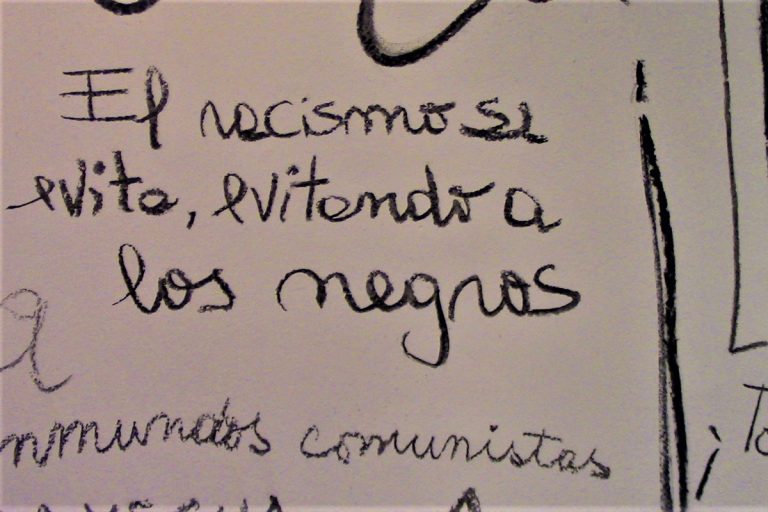 El racismo se
evita, evitando a
los negros
inmundos comunistas
¡To